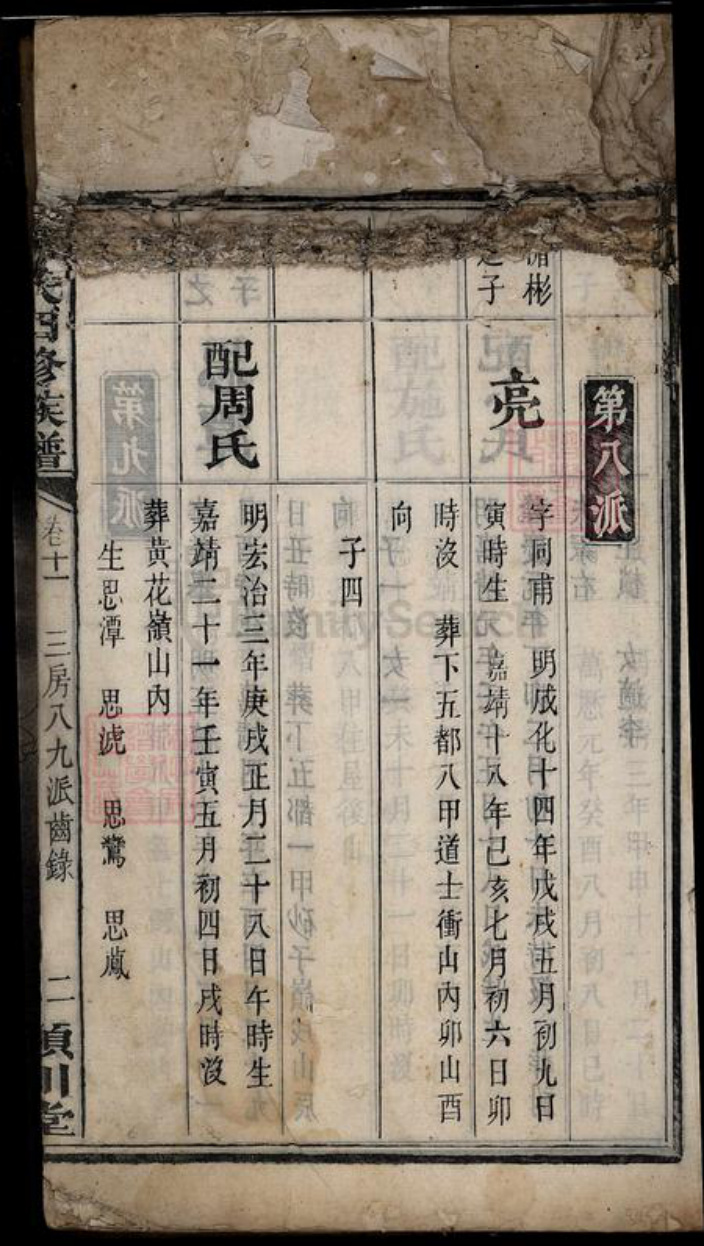 第八派
彬
子
亮
字同甫 明成化十四年戊戌五月初九日
寅時生 嘉靖十八年己亥七月初六日卯
時沒 葬下五都八甲道士衝山內卯山酉
向
子四
配周氏
明宏治三年庚戌正月二十八日午時生
嘉靖二十一年壬寅五月初四日戌時沒
葬黃花嶺山內
生思潭 思淲 思鸞 思鳳
四修族譜
卷十一
三房八九派齒錄
二
潁川堂
FamilySearch